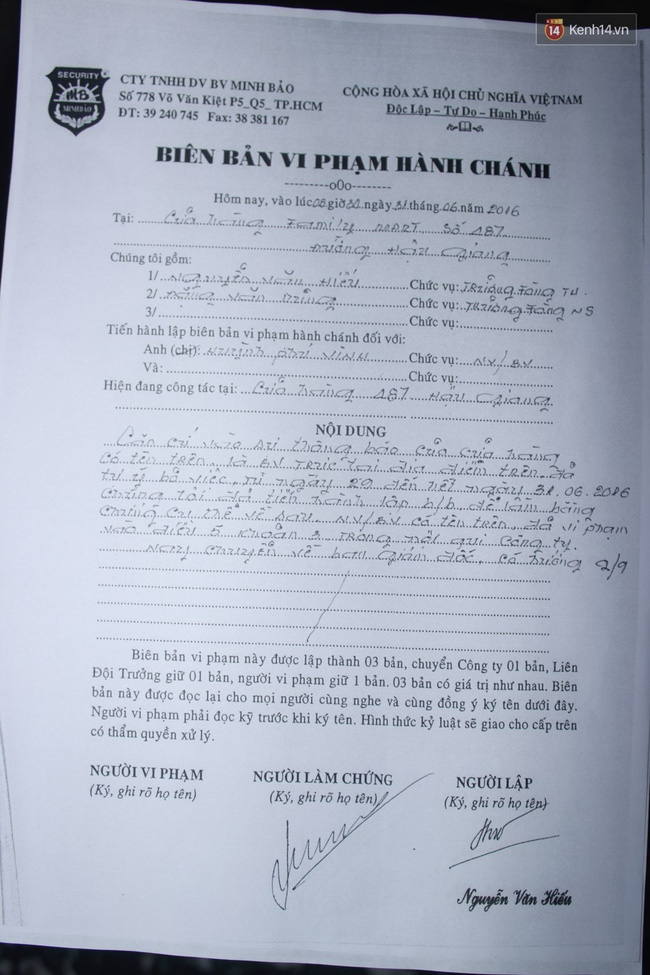 Kenh14.vn
SECURITY
MB
MINH BẢO
CTY TNHH DV BV MINH BẢO
Số 778 Võ Văn Kiệt P5_Q5_ TP.HCM
ĐT: 39 240 745 Fax: 38 381 167
CỘNG HÒA XÃ HỘI CHỦ NGHĨA VIỆTNAM
Độc Lập – Tự Do – Hạnh Phúc
BIÊN BẢN VI PHẠM HÀNH CHÁNH
---------o0o--------
Hôm nay, vào lúc 08 giờ 30 ngày 31 tháng 06 năm 2016
Tại: Cửa hàng Family MART Số 487
Đường Hậu Giang
Chúng tôi gồm:
1/ Nguyễn Văn Hiếu Chức vụ: Trưởng Tầng TU.
2/ Đặng Văn Chức vụ: Trưởng Tầng NS
3/ Chức vụ:
Tiến hành lập biên bản vi phạm hành chánh đối với:
Anh (chị): Huỳnh Phú Vinh Chức vụ: NV/BV
Và: Chức vụ:
Hiện đang công tác tại: Cửa hàng 487 Hậu Giang
NỘI DUNG
Căn cứ vào sự thông báo của cửa hàng
có tên trên, là BV trực tại địa điểm trên, đã
tự ý bỏ việc, từ ngày 29 đến hết ngày 31.06.2016
Chúng tôi đã tiến hành lập b/b để làm bằng
chứng cụ thể về sau. NV/BV có tên trên, đã vi phạm
vào điều 5 khoản 3 trong nội qui công ty.
Nay chuyển về ban Giám đốc, có hướng g/q
Biên bản vi phạm này được lập thành 03 bản, chuyển Công ty 01 bản, Liên
Đội Trưởng giữ 01 bản, người vi phạm giữ 1 bản. 03 bản có giá trị như nhau. Biên
bản này được đọc lại cho mọi người cùng nghe và cùng đồng ý ký tên dưới đây.
Người vi phạm phải đọc kỹ trước khi ký tên. Hình thức kỷ luật sẽ giao cho cấp trên
có thẩm quyền xử lý.
NGƯỜI VI PHẠM NGƯỜI LÀM CHỨNG NGƯỜI LẬP
(Ký, ghi rõ họ tên) (Ký, ghi rõ họ tên) (Ký, ghi rõ họ tên)
Nguyễn Văn Hiếu